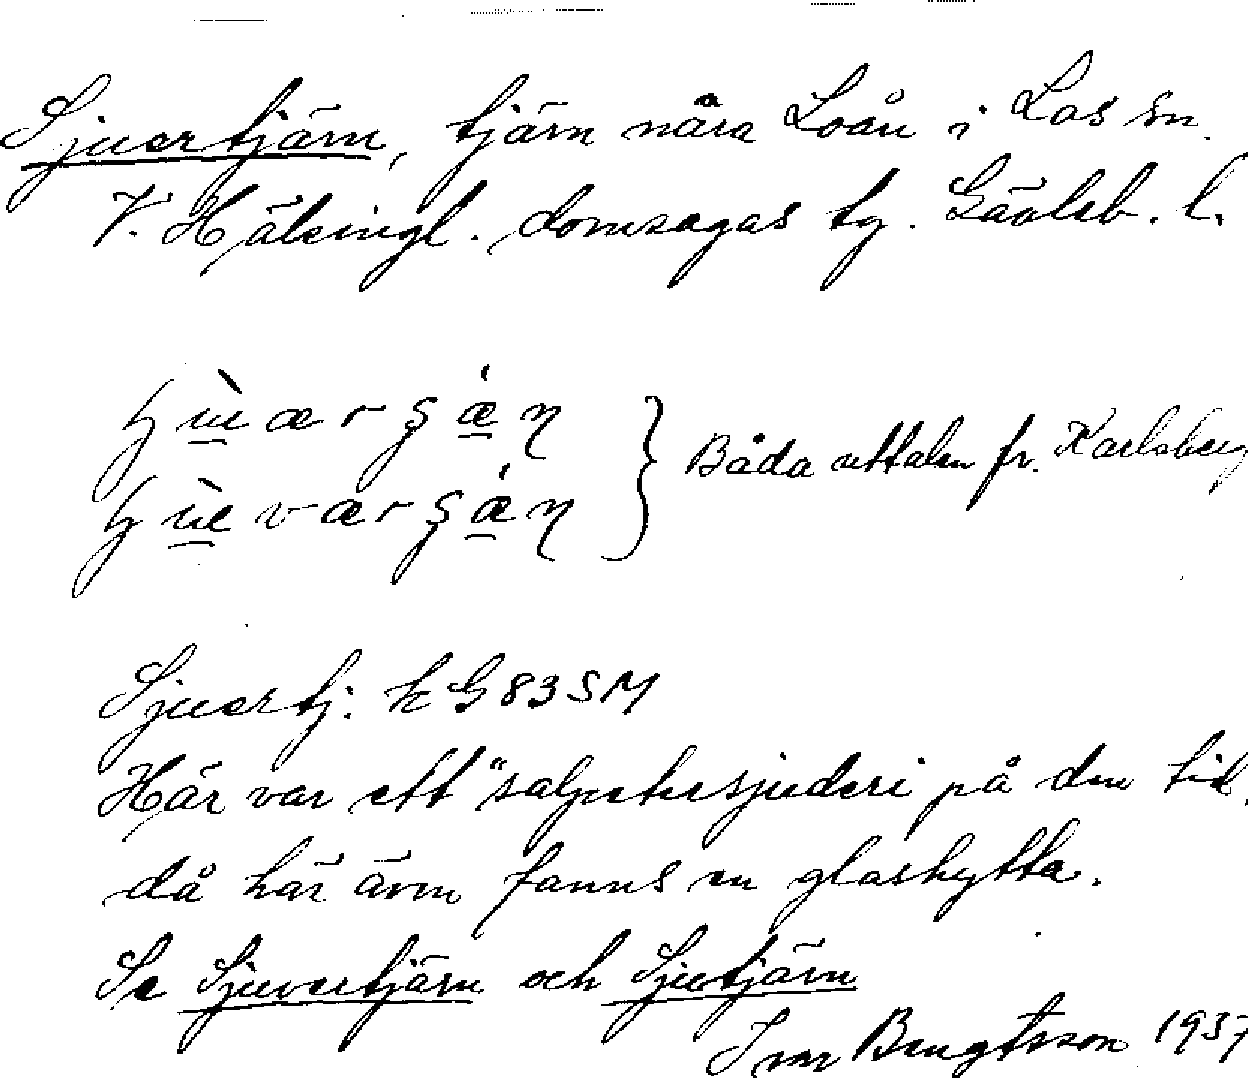 Sjuertjärn, tjärn nära Loån i Los sn.
V. Hälsingl. domsagas tg. Gävleb. l.
Båda uttalen fr. Karlsberg
Sjuertj. k G 83 SM
Här var ett "salpetersjuderi på den tid,
då här även fanns en glashytta.
Se Sjuvertjärn och Sjutjärn
Ivar Bengtsson 1937